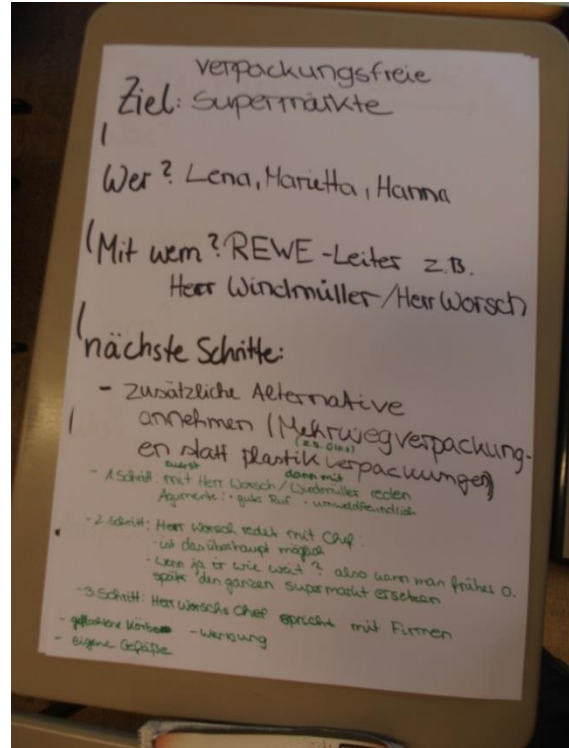 verpackungsfreie
Ziel: Supermärkte
Wer? Lena, Marietta, Hanna
Mit wem? REWE-Leiter z.B.
Herr Windmüller/Herr Worsch
nächste Schritte:
- zusätzliche Alternative
annehmen (Mehrwegverpackung-
(z.B. Glas)
en statt plastikverpackungen)
zuerst dann mit
- 1. Schritt: mit Herr Worsch/Windmüller reden
Argumente: · guter Ruf · umweldfreundlich
- 2. Schritt: Herr Worsch redet mit Chef:
· ist das überhaupt möglich
· wenn ja wie weit? also kann man frühes o.
später den ganzen supermarkt ersetzen
- 3. Schritt: Herr Worschs Chef spricht mit Firmen
- geflochtene Körbe - Werbung
- eigene Gefäße